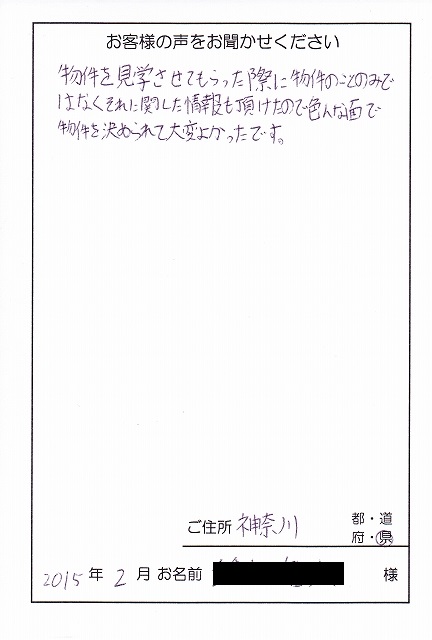 お客様の声をお聞かせください
物件を見学させてもらった際に物件のことのみで
はなくそれに関した情報も頂けたので色んな面で
物件を決められて大変よかったです。
ご住所 神奈川 都・道
府・県
2015年 2月 お名前 様